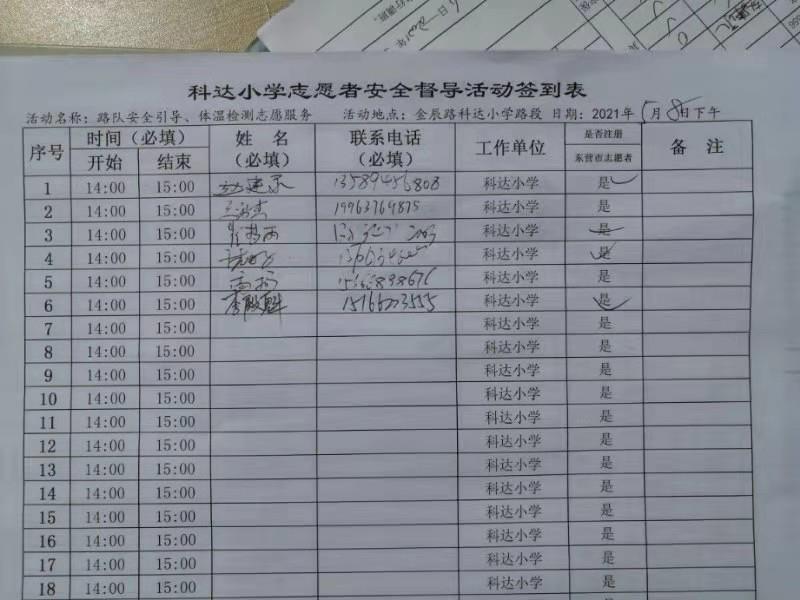 科达小学志愿者安全督导活动签到表
活动名称：路队安全引导、体温检测志愿服务 活动地点：金辰路科达小学路段 日期：2021年5月8日下午
序号 时间（必填） 姓名（必填） 联系电话（必填） 工作单位 是否注册东营市志愿者 备注
开始 结束
1 14:00 15:00 13589456808 科达小学 是
2 14:00 15:00 19963769875 科达小学 是
3 14:00 15:00 科达小学 是
4 14:00 15:00 科达小学 是
5 14:00 15:00 科达小学 是
6 14:00 15:00 科达小学 是
7 14:00 15:00 科达小学 是
8 14:00 15:00 科达小学 是
9 14:00 15:00 科达小学 是
10 14:00 15:00 科达小学 是
11 14:00 15:00 科达小学 是
12 14:00 15:00 科达小学 是
13 14:00 15:00 科达小学 是
14 14:00 15:00 科达小学 是
15 14:00 15:00 科达小学 是
16 14:00 15:00 科达小学 是
17 14:00 15:00 科达小学 是
18 14:00 15:00 科达小学 是